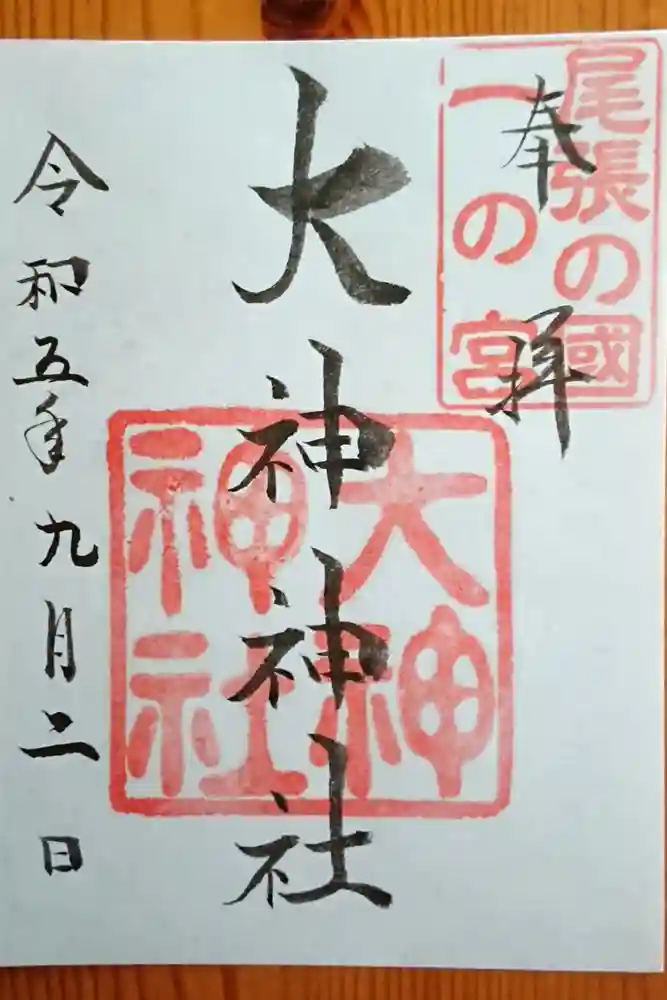 尾張の國
一の宮
奉拝
大神神社
大神
神社
令和五年九月二日